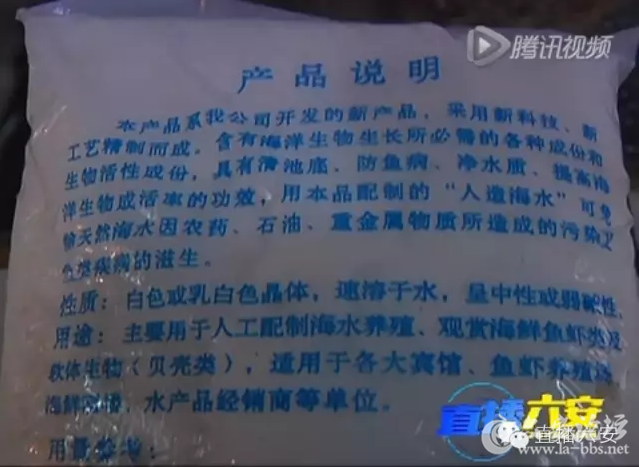 腾讯视频
产品说明
本产品系我公司开发的新产品，采用新科技、新
工艺精制而成。含有海洋生物生长所必需的各种成份和
生物活性成份，具有清池底、防鱼病、净水质、提高海
洋生物成活率的功效，用本品配制的“人造海水”可免
除天然海水因农药、石油、重金属物质所造成的污染
疾病的滋生。
性质：白色或乳白色晶体，速溶于水，呈中性或弱碱性。
用途：主要用于人工配制海水养殖、观赏海鲜鱼虾类及
软体生物（贝壳类），适用于各大宾馆、鱼虾养殖
海鲜 水产品经销商等单位。
用量
直播六安
直播六安
www.la-bbs.net